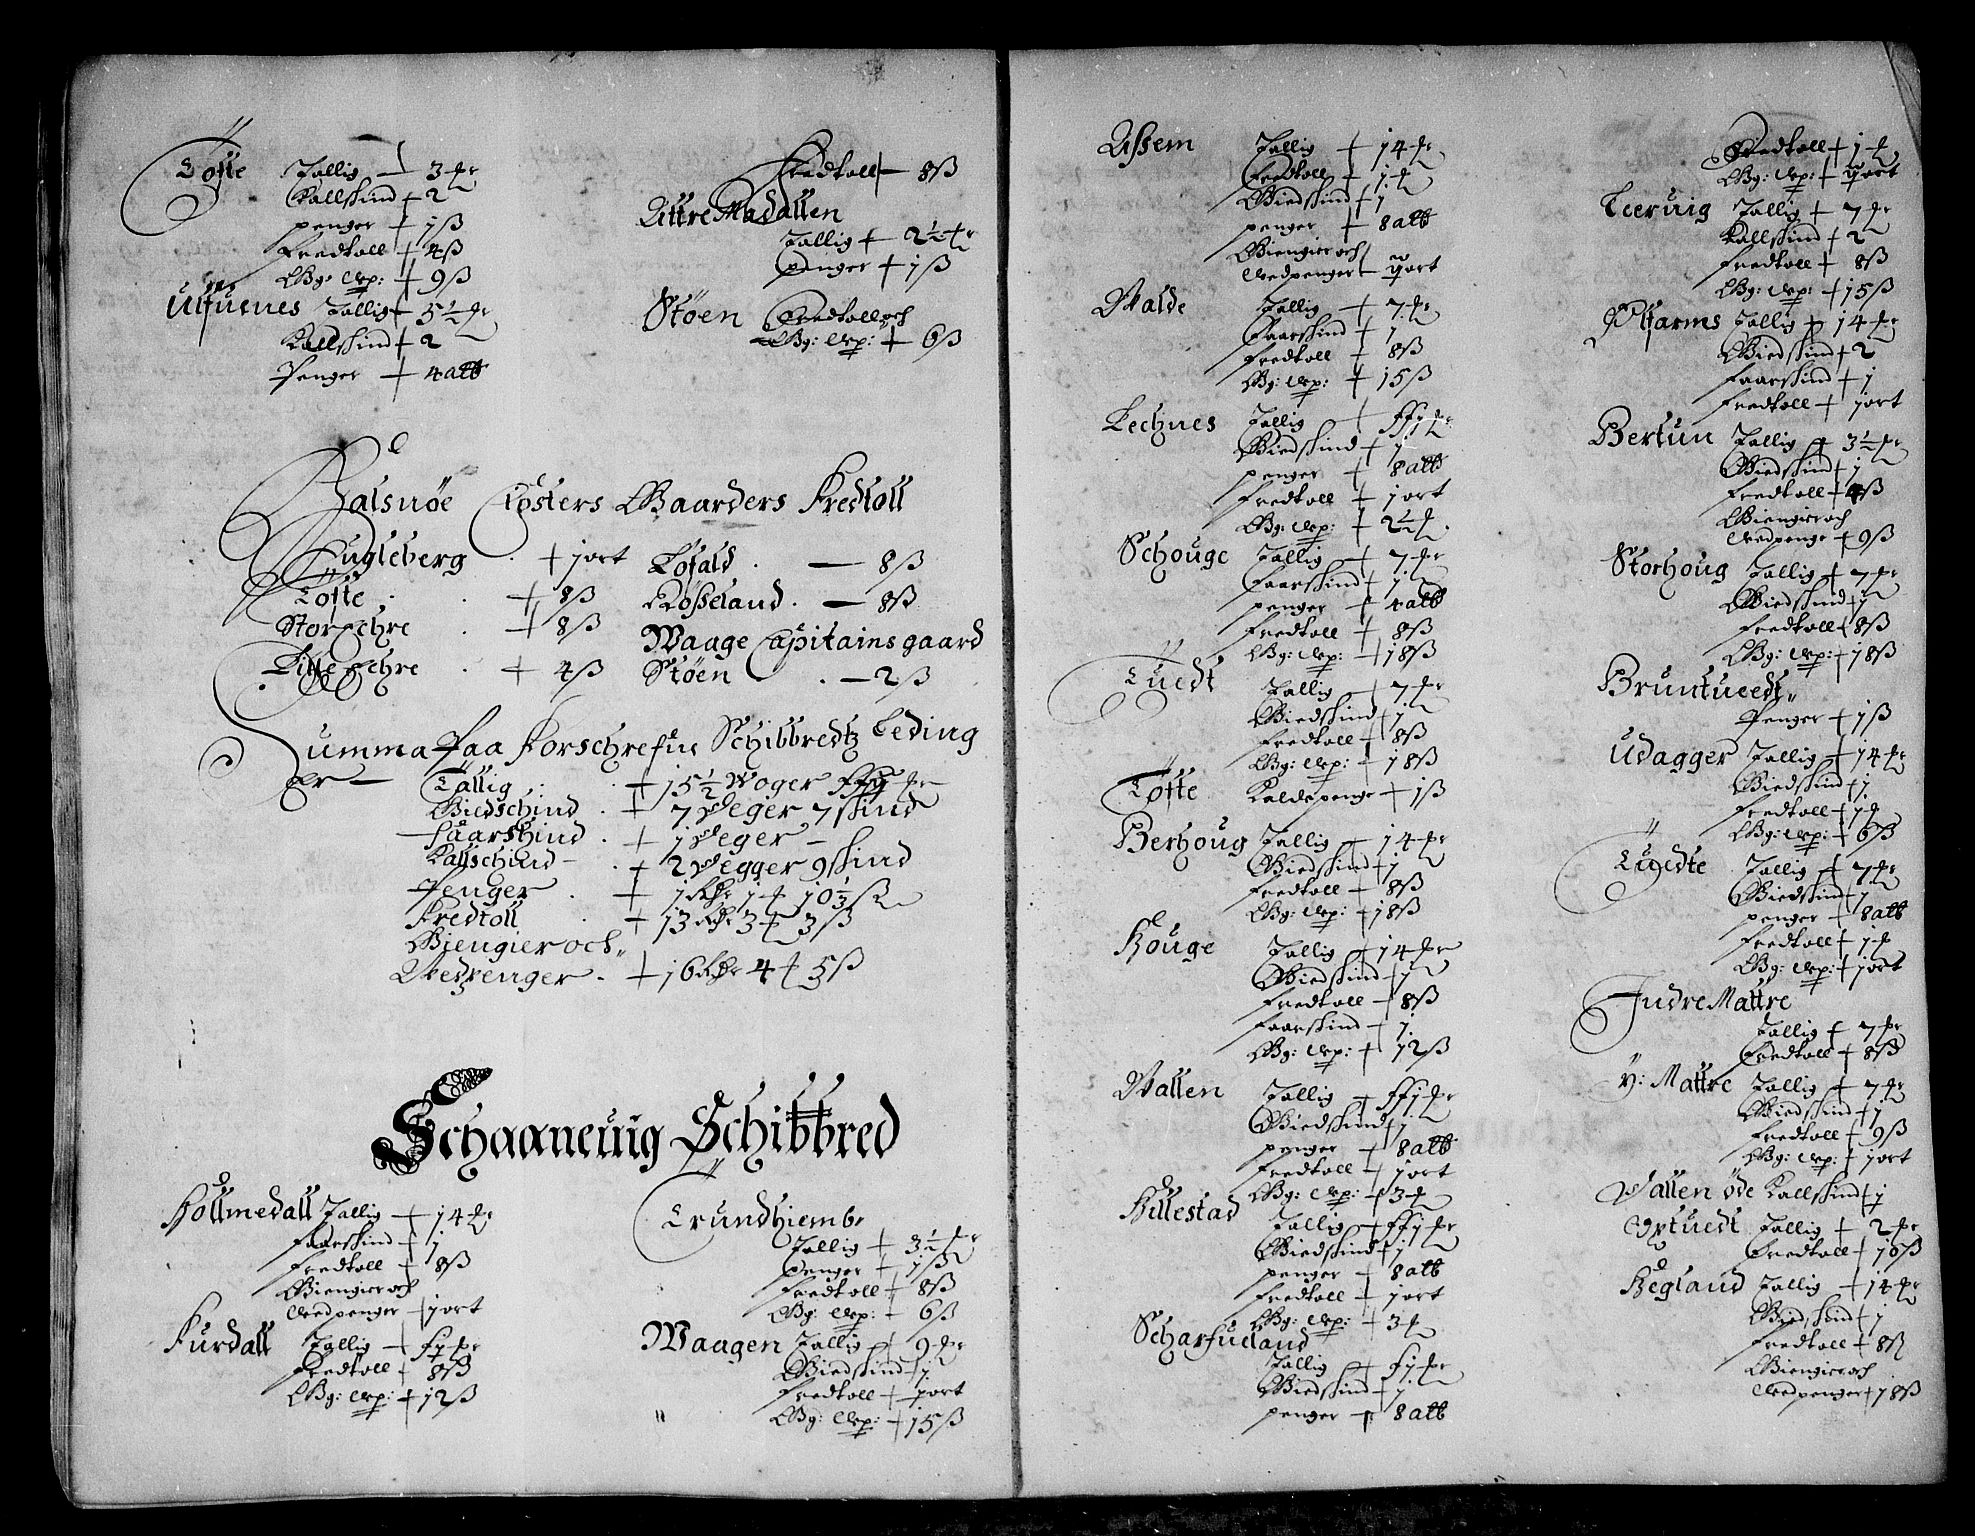 Tofte Tallig — 3 pr
Kallskind + 2
penger + 1 ß
Fredtoll + 4 ß
Bg: Vep: + 9 ß
Ulfuenes Tallig + 5½ pr
Kallskind + 2
Penger + 4 alb
Fredtoll — 8 ß
Ittre Madallen
Tallig + 2½ pr
penger + 1 ß
Stöen Fredtoll och
Bg: Vep: + 6 ß
Halsnöe Closters Gaarders Fredtoll
Fugleberg + 1 ort
Tofte + 8 ß
Store + 8 ß
Lille + 4 ß
Lofald — 8 ß
Rösseland — 8 ß
Waage Capitains gaard
Stöen — 2 ß
Summa Paa Forschrefne Schibbredtz Leding
Er —
Tallig + 15½ Woger
Biedschind + 7 Deger 7 skind
Faarskind + 1 Deger —
Kallschind + 2 Degger 9 skind
Penger + 1 Rdr 1 + 10½ ß
Fredtoll + 13 Rdr 3 + 3 ß
Bjengier och
Vedpenger + 16 Rdr 4 + 5 ß
Schaaneuig Schibbred
Hollmedall Tallig + 14 pr
Faarskind + 1
Fredtoll + 8 ß
Biengier och
Vedpenger + 1 ort
Furdall Tallig +
Fredtoll + 8 ß
Bg: Vep: + 12 ß
Trundhiemb
Tallig + 3½ pr
Penger + 1 ß
Fredtoll + 8 ß
Bg: Vep: + 6 ß
Waagen Tallig + 9 pr
Biedskind + 1
Fredtoll + 1 ort
Bg: Vep: + 15 ß
Assem Tallig + 14 pr
Fredtoll + 1
Biedskind + 1
penger + 8 alb
Biengier och
Vedpenger — ort
Walde Tallig + 7 pr
Faarskind + 1
Fredtoll + 8 ß
Bg: Vep: + 15 ß
Lechnes Tallig +
Biedskind + 1
penger + 8 alb
Fredtoll + 1 ort
Bg: Vep: + 2½
Schouge Tallig + 7 pr
Faarskind + 1
penger + 4 alb
Fredtoll + 8 ß
Bg: Vep: + 18 ß
Tuedt Tallig + 7 pr
Biedskind + 1
Fredtoll + 8 ß
Bg: Vep: + 18 ß
Tofte penge + 1 ß
Berhoug Tallig — 14 pr
Biedskind + 1
Fredtoll + 8 ß
Bg: Vep: + 18 ß
Houge Tallig + 14 pr
Biedskind + 1
Fredtoll + 8 ß
Faarskind + 1
Bg: Vep: + 12 ß
Wallen Tallig +
Biedskind + 1
penger + 8 alb
Fredtoll + 1 ort
Bg: Vep: + 3
Hillestad
Tallig +
Biedskind + 1
penger + 8 alb
Fredtoll + 1 ort
Bg: Vep: + 3
Scharfueland
Tallig +
Biedskind + 1
penger + 8 alb
Fredtoll + 1
Bg: Vep: + ort
Leeruig Tallig + 7 pr
Kallskind + 2
Fredtoll + 8 ß
Bg: Vep: + 15 ß
Tallig + 14 pr
Biedskind + 2
Faarskind + 1
Fredtoll + 1 ort
Bertun Tallig + 3½ pr
Biedskind + 1
Fredtoll + 4 ß
Biengier och
Vedpenge + 9 ß
Storhoug Tallig + 7 pr
Biedskind + 1
Fredtoll + 8 ß
Bg: Vep: + 18 ß
Bruntueedt
Penger + 1 ß
Udagger Tallig + 14 pr
Biedskind + 1
Fredtoll + 1
Bg: Vep: + 6 ß
Tuedte Tallig + 7 pr
Biedskind + 1
penger + 8 alb
Fredtoll + 1
Bg: Vep: + 1 ort
Indre Mattre
Tallig + 7 pr
Fredtoll + 8 ß
Y: Mattre Tallig + 7 pr
Biedskind + 1
Fredtoll + 9 ß
Bg: Vep: + 1 ort
Wallen öde Kallskind + 1
Tallig + 2 pr
Fredtoll + 10 ß
Hegland Tallig + 14 pr
Biedskind + 1
Fredtoll + 8 ß
Biengier och
Vedpenger + 18 ß